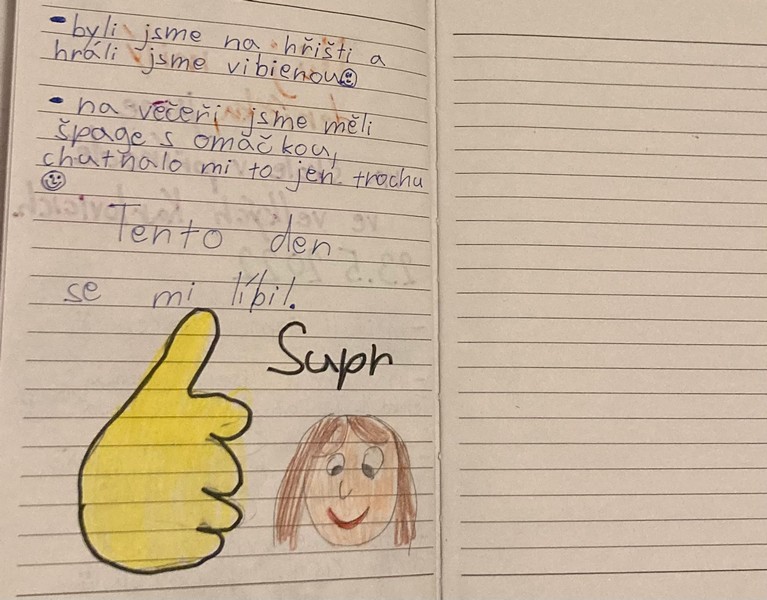 - byli jsme na hřišti a
hráli jsme vibienou
- na večeři jsme měli
špage s omáčkou,
chuťnalo mi to jen trochu
Tento den
se mi líbil.
Supr